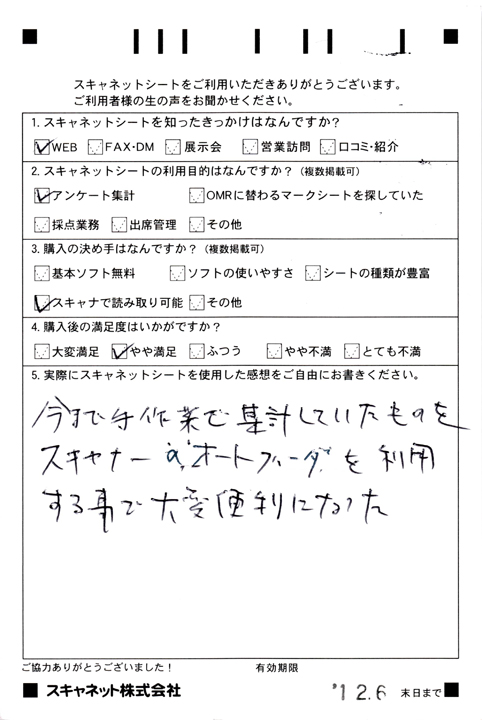 スキャネットシートをご利用いただきありがとうございます。
ご利用者様の生の声をお聞かせください。
1. スキャネットシートを知ったきっかけはなんですか？
WEB FAX・DM 展示会 営業訪問 口コミ・紹介
2. スキャネットシートの利用目的はなんですか？（複数掲載可）
アンケート集計 OMRに替わるマークシートを探していた
採点業務 出席管理 その他
3. 購入の決め手はなんですか？（複数掲載可）
基本ソフト無料 ソフトの使いやすさ シートの種類が豊富
スキャナで読み取り可能 その他
4. 購入後の満足度はいかがですか？
大変満足 やや満足 ふつう やや不満 とても不満
5. 実際にスキャネットシートを使用した感想をご自由にお書きください。
今まで手作業で集計していたものを
スキャナー オートフィーダを利用
する事で大変便利になった
ご協力ありがとうございました！ 有効期限
スキャネット株式会社 '12.6 末日まで